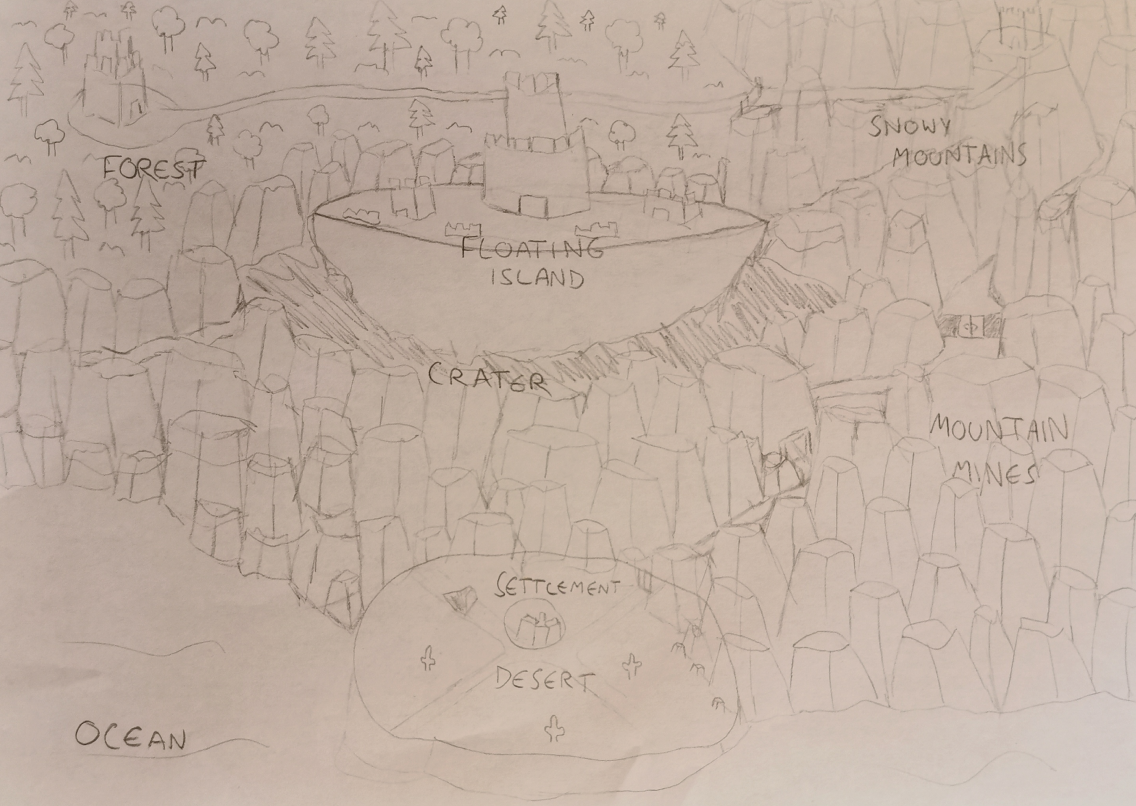 SNOWY
MOUNTAINS
FOREST
FLOATING
ISLAND
CRATER
MOUNTAIN
MINES
SETTLEMENT
DESERT
OCEAN